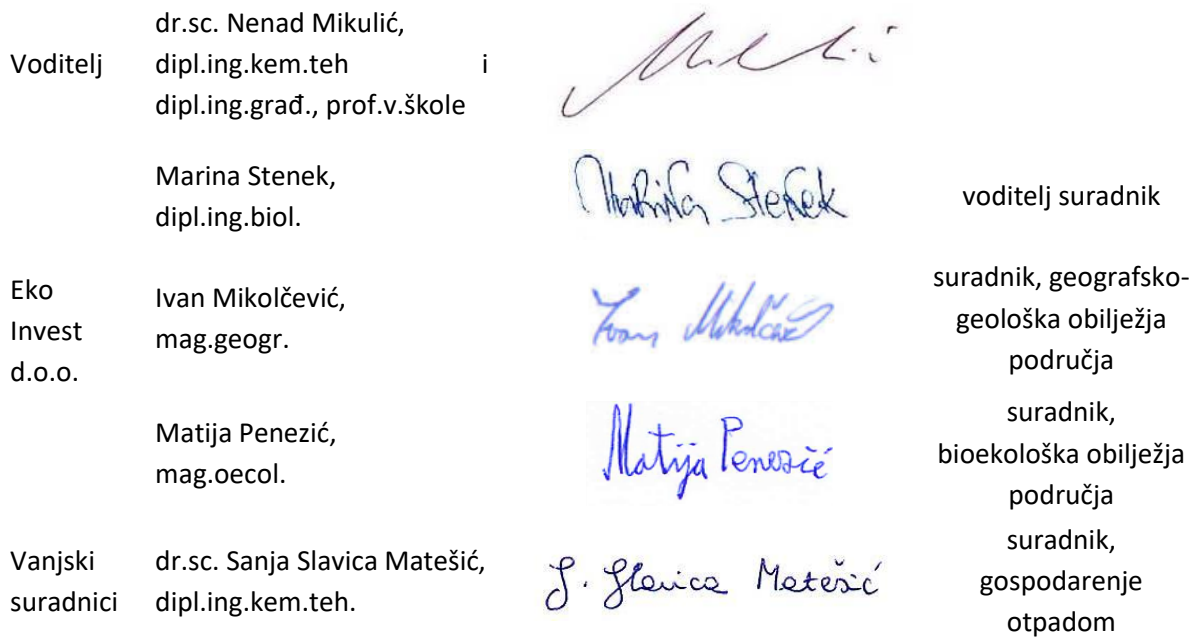 Voditelj
dr.sc. Nenad Mikulić,
dipl.ing.kem.teh i
dipl.ing.građ., prof.v.škole
Mikulić
Marina Stenek,
dipl.ing.biol.
Marina Stenek
voditelj suradnik
Eko
Invest
d.o.o.
Ivan Mikolčević,
mag.geogr.
Ivan Mikolčević
suradnik, geografsko-
geološka obilježja
područja
Matija Penezić,
mag.oecol.
Matija Penezić
suradnik,
bioekološka obilježja
područja
Vanjski
suradnici
dr.sc. Sanja Slavica Matešić,
dipl.ing.kem.teh.
S. Slavica Matešić
suradnik,
gospodarenje
otpadom